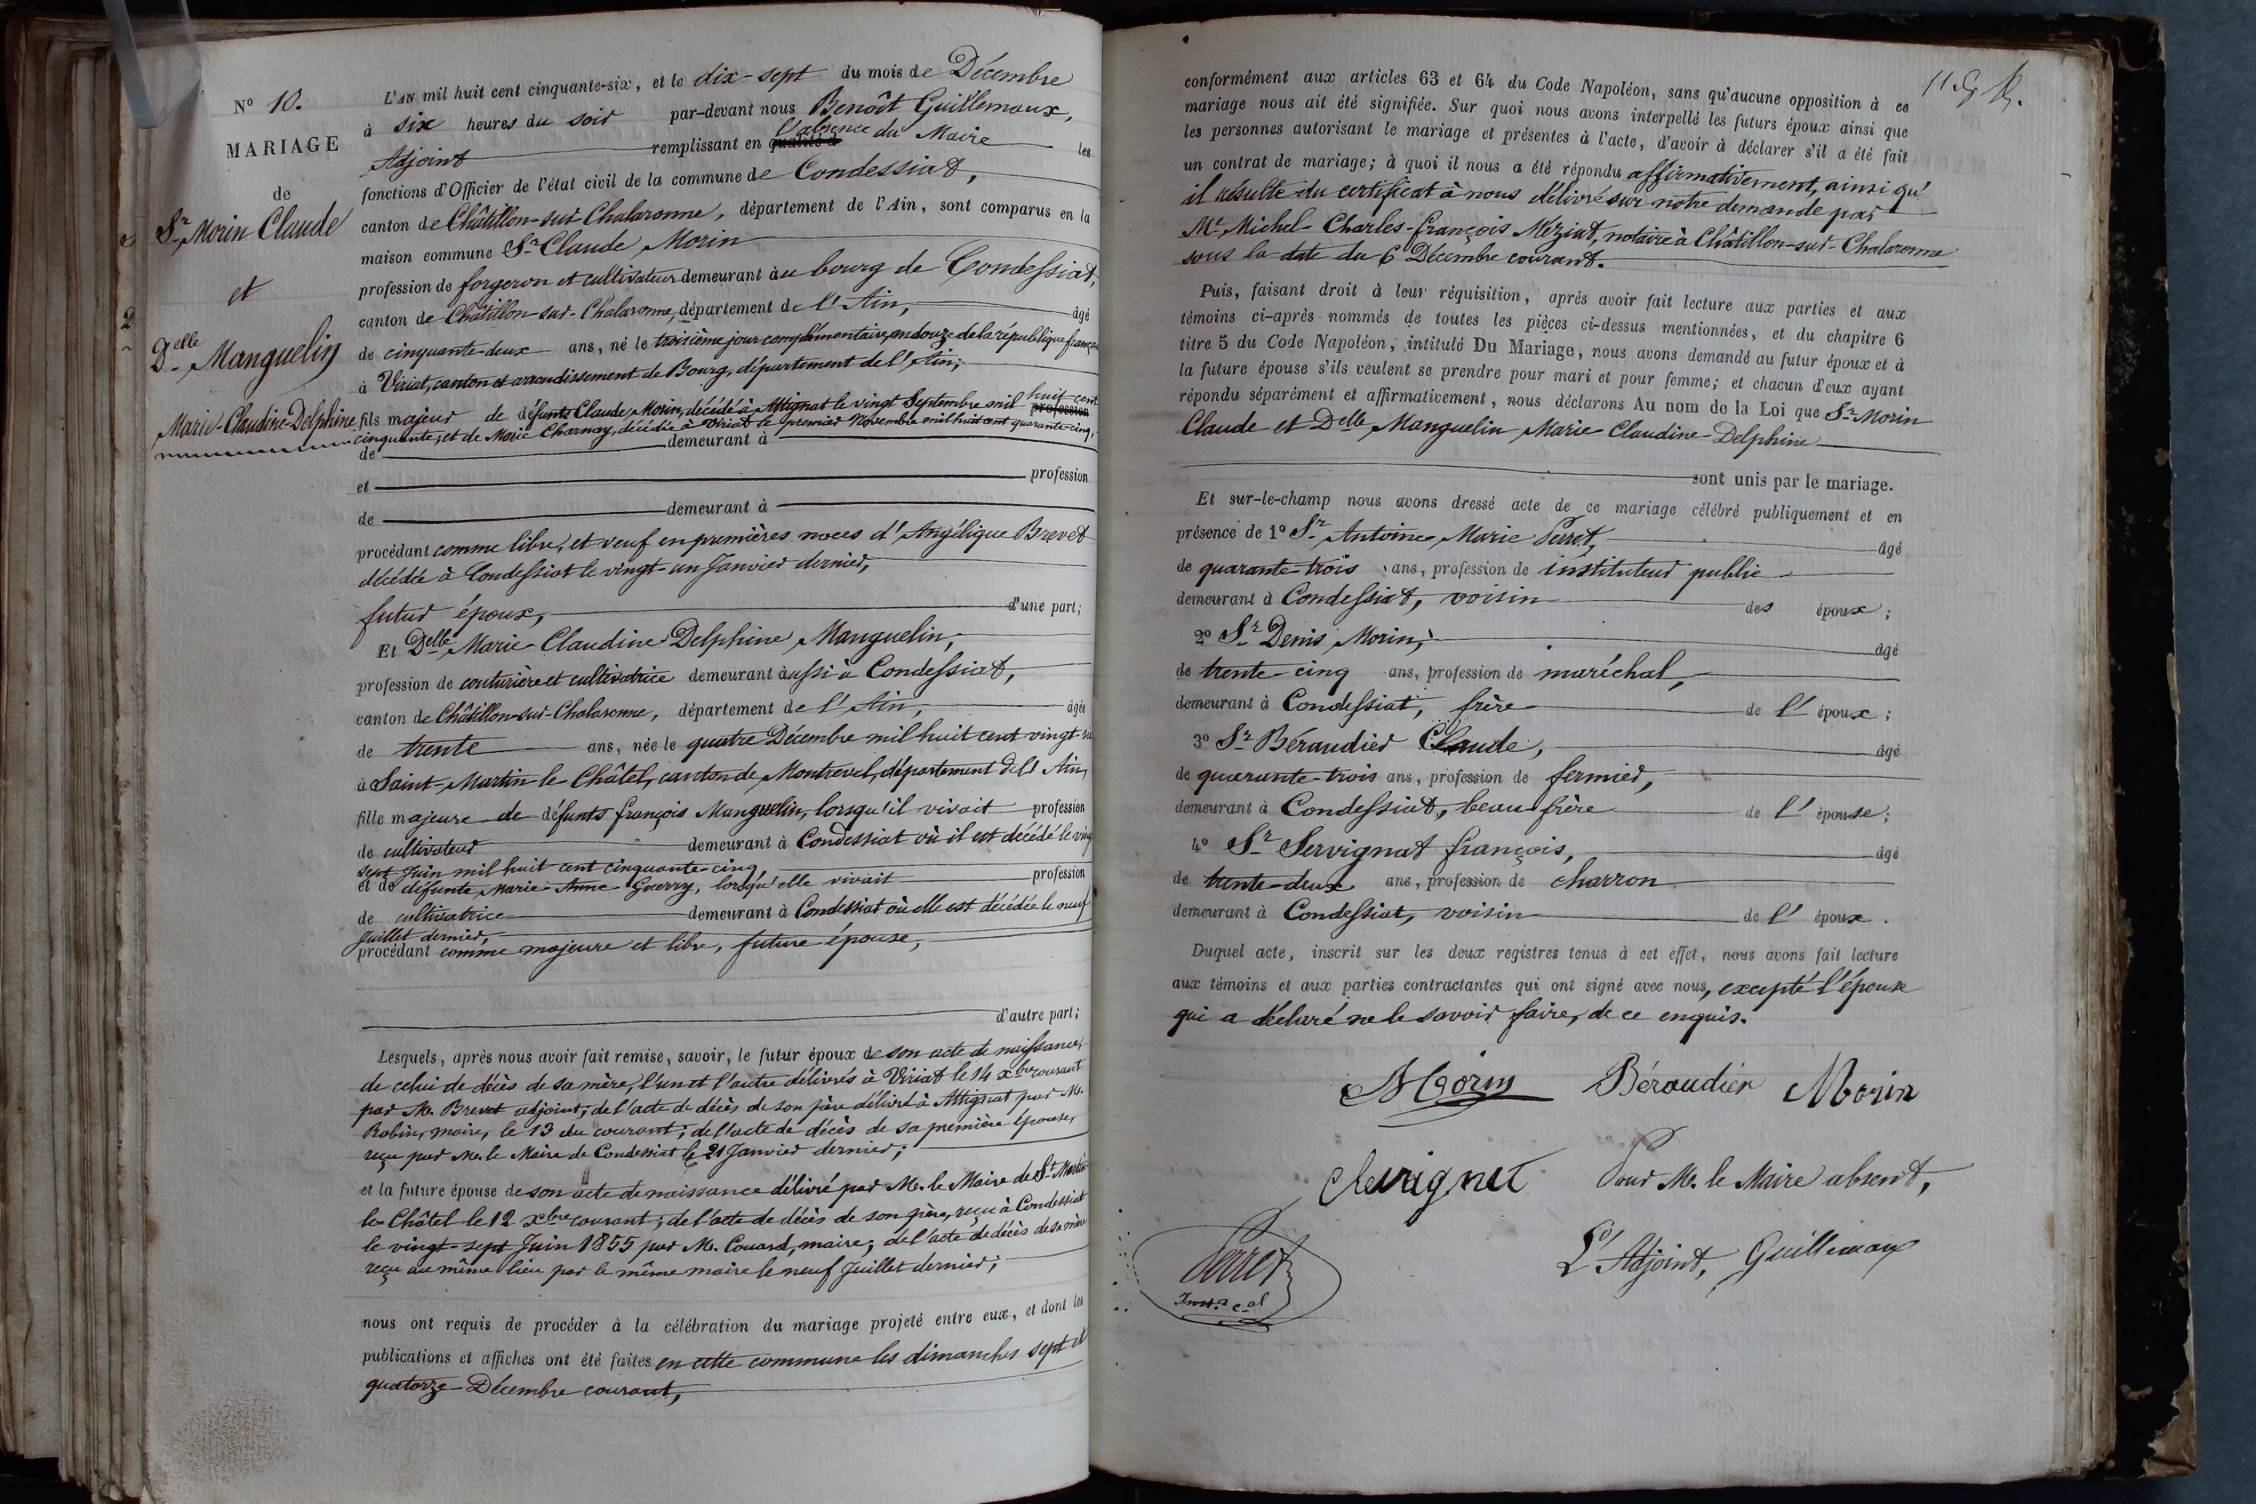 N° 10.
MARIAGE
de
Sr Morin Claude
et
Delle Manguelin
Marie-Claudine-Delphine
L'AN mil huit cent cinquante-six, et le dix-sept du mois de Décembre
à six heures du soir par-devant nous Benoît Guillemaux,
Adjoint remplissant en l'absence du Maire les
fonctions d'Officier de l'état civil de la commune de Condessiat,
canton de Châtillon-sur-Chalaronne, département de l'Ain, sont comparus en la
maison commune Sr Claude Morin
profession de forgeron et cultivateur demeurant au bourg de Condessiat,
canton de Châtillon-sur-Chalaronne, département de l'Ain, âgé
de cinquante-deux ans, né le troisième jour complémentaire, an douze de la république françai
à Viriat, canton et arrondissement de Bourg, département de l'Ain;
fils majeur de défunts Claude Morin, décédé à Attignat le vingt Septembre mil huit cent profession
cinquante; et de Marie Charnay, décédée à Viriat le premier Novembre mil huit cent quarante-cinq,
de demeurant à
et profession
de demeurant à
procédant comme libre, et veuf en premières noces d'Angélique Brevet
décédée à Condessiat le vingt-un Janvier dernier,
futur époux, d'une part;
Et Delle Marie-Claudine-Delphine Manguelin,
profession de couturière et cultivatrice demeurant aussi à Condessiat,
canton de Châtillon-sur-Chalaronne, département de l'Ain, âgée
de trente ans, née le quatre Décembre mil huit cent vingt-six
à Saint-Martin-le-Châtel, canton de Montrevel, département de l'Ain,
fille majeure de défunts françois Manguelin, lorsqu'il vivait profession
de cultivateur demeurant à Condessiat où il est décédé le vingt
sept Juin mil huit cent cinquante-cinq,
et de défunte Marie-Anne Guerry, lorsqu'elle vivait profession
de cultivatrice demeurant à Condessiat où elle est décédée le neuf
Juillet dernier,
procédant comme majeure et libre, future épouse,
d'autre part;
Lesquels, après nous avoir fait remise, savoir, le futur époux de son acte de naissance,
de celui de décès de sa mère, l'un et l'autre délivrés à Viriat le 14 xbre courant
par M. Brevet adjoint; de l'acte de décès de son père délivré à Attignat par M.
Robin, maire, le 13 du courant; de l'acte de décès de sa première épouse,
reçu par M. le Maire de Condessiat le 21 Janvier dernier;
et la future épouse de son acte de naissance délivré par M. le Maire de St Martin
le Châtel le 12 xbre courant; de l'acte de décès de son père, reçu à Condessiat
le vingt-sept Juin 1855 par M. Couard, maire; de l'acte de décès de sa mère
reçu au même lieu par le même maire le neuf Juillet dernier;
nous ont requis de procéder à la célébration du mariage projeté entre eux, et dont les
publications et affiches ont été faites en cette commune les dimanches sept et
quatorze Décembre courant,
conformément aux articles 63 et 64 du Code Napoléon, sans qu'aucune opposition à ce
mariage nous ait été signifiée. Sur quoi nous avons interpellé les futurs époux ainsi que
les personnes autorisant le mariage et présentes à l'acte, d'avoir à déclarer s'il a été fait
un contrat de mariage; à quoi il nous a été répondu affirmativement, ainsi qu'
il résulte du certificat à nous délivré sur notre demande par
Mr. Michel-Charles-françois Méziat, notaire à Châtillon-sur-Chalaronne
sous la date du 6 Décembre courant.
Puis, faisant droit à leur réquisition, après avoir fait lecture aux parties et aux
témoins ci-après nommés de toutes les pièces ci-dessus mentionnées, et du chapitre 6
titre 5 du Code Napoléon, intitulé Du Mariage, nous avons demandé au futur époux et à
la future épouse s'ils veulent se prendre pour mari et pour femme; et chacun d'eux ayant
répondu séparément et affirmativement, nous déclarons Au nom de la Loi que Sr Morin
Claude et Delle Manguelin Marie-Claudine-Delphine
sont unis par le mariage.
Et sur-le-champ nous avons dressé acte de ce mariage célébré publiquement et en
présence de 1° Sr Antoine Marie Perret, âgé
de quarante-trois ans, profession de instituteur public
demeurant à Condessiat, voisin des époux;
2° Sr Denis Morin, âgé
de trente-cinq ans, profession de maréchal,
demeurant à Condessiat, frère de l'époux;
3° Sr Béraudier Claude, âgé
de quarante-trois ans, profession de fermier,
demeurant à Condessiat, beau frère de l'épouse;
4° Sr Servignat françois, âgé
de trente-deux ans, profession de charron
demeurant à Condessiat, voisin de l'époux.
Duquel acte, inscrit sur les deux registres tenus à cet effet, nous avons fait lecture
aux témoins et aux parties contractantes qui ont signé avec nous, excepté l'épouse
qui a déclaré ne le savoir faire, de ce enquis.
Morin Béraudier Morin
Pour M. le Maire absent,
L'Adjoint, Guillemaux
Perret